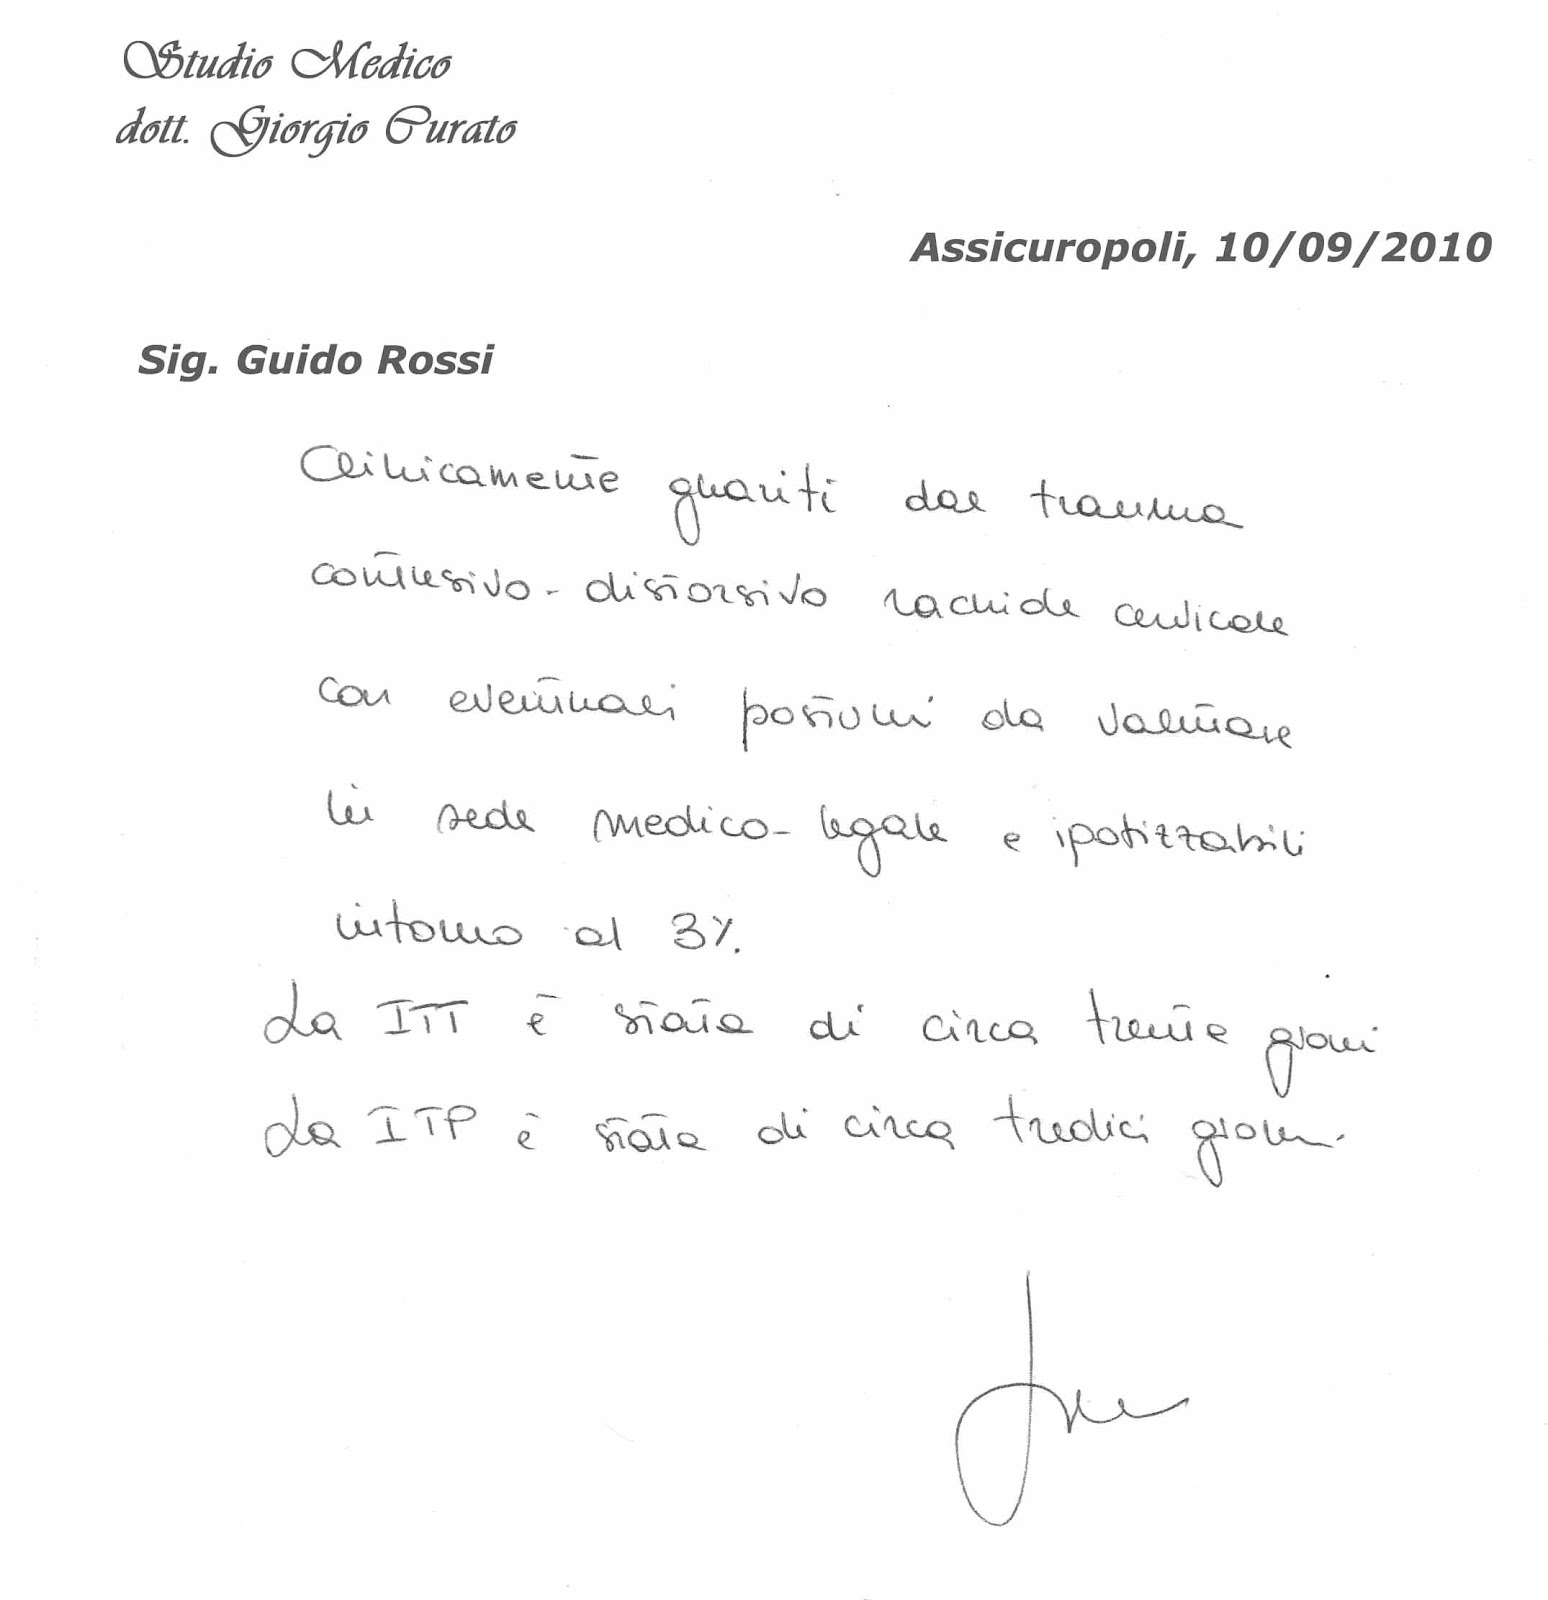 Studio Medico
dott. Giorgio Curato
Assicuropoli, 10/09/2010
Sig. Guido Rossi
Clinicamente guariti dal trauma
contusivo-distorsivo rachide cervicale
con eventuali postumi da valutare
in sede medico-legale e ipotizzabili
intorno al 3%.
La ITT è stata di circa trenta giorni
La ITP è stata di circa tredici giorni.